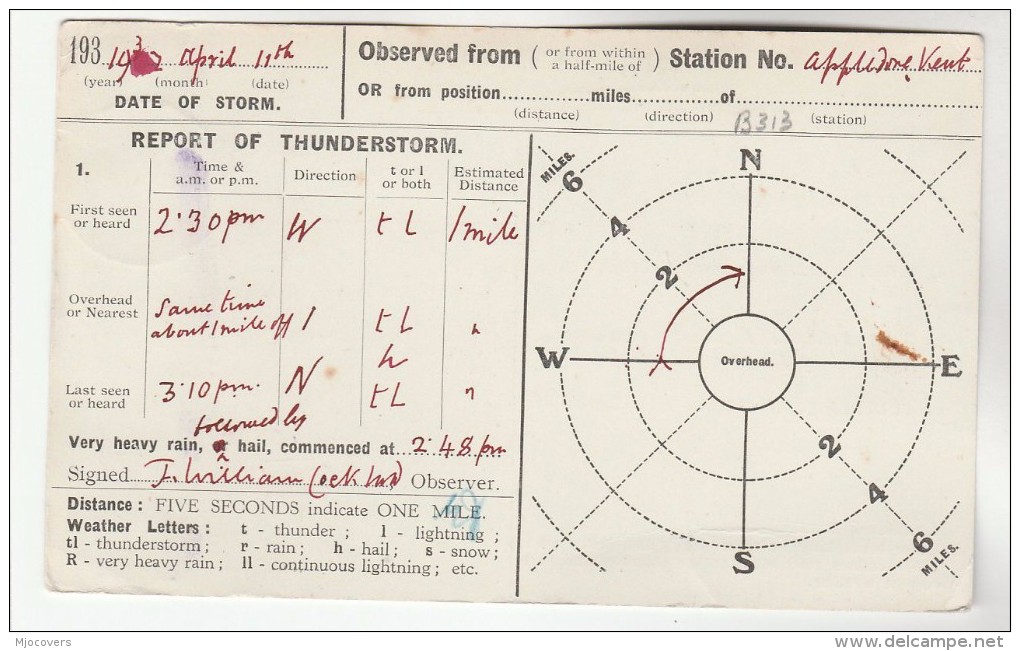 193 19 3 April 11th
(year) (month) (date)
DATE OF STORM.
Observed from ( or from within a half-mile of ) Station No. Appledore, Kent
OR from position.............miles............of
(distance) (direction) B313 (station)
REPORT OF THUNDERSTORM.
1. Time & a.m. or p.m. Direction t or l or both Estimated Distance
First seen or heard 2.30 pm W t L 1 mile
Overhead or Nearest Same time about 1 mile off t L "
h
Last seen or heard 3.10 pm. N t L "
followed by
Very heavy rain, or hail, commenced at 2.48 pm
Signed J. William Observer.
Distance: FIVE SECONDS indicate ONE MILE.
Weather Letters: t - thunder; l - lightning;
tl - thunderstorm; r - rain; h - hail; s - snow;
R - very heavy rain; ll - continuous lightning; etc.
N
MILES.
6
4
2
W
Overhead.
E
2
4
6
MILES.
S
Mjocovers
www.delcampe.net